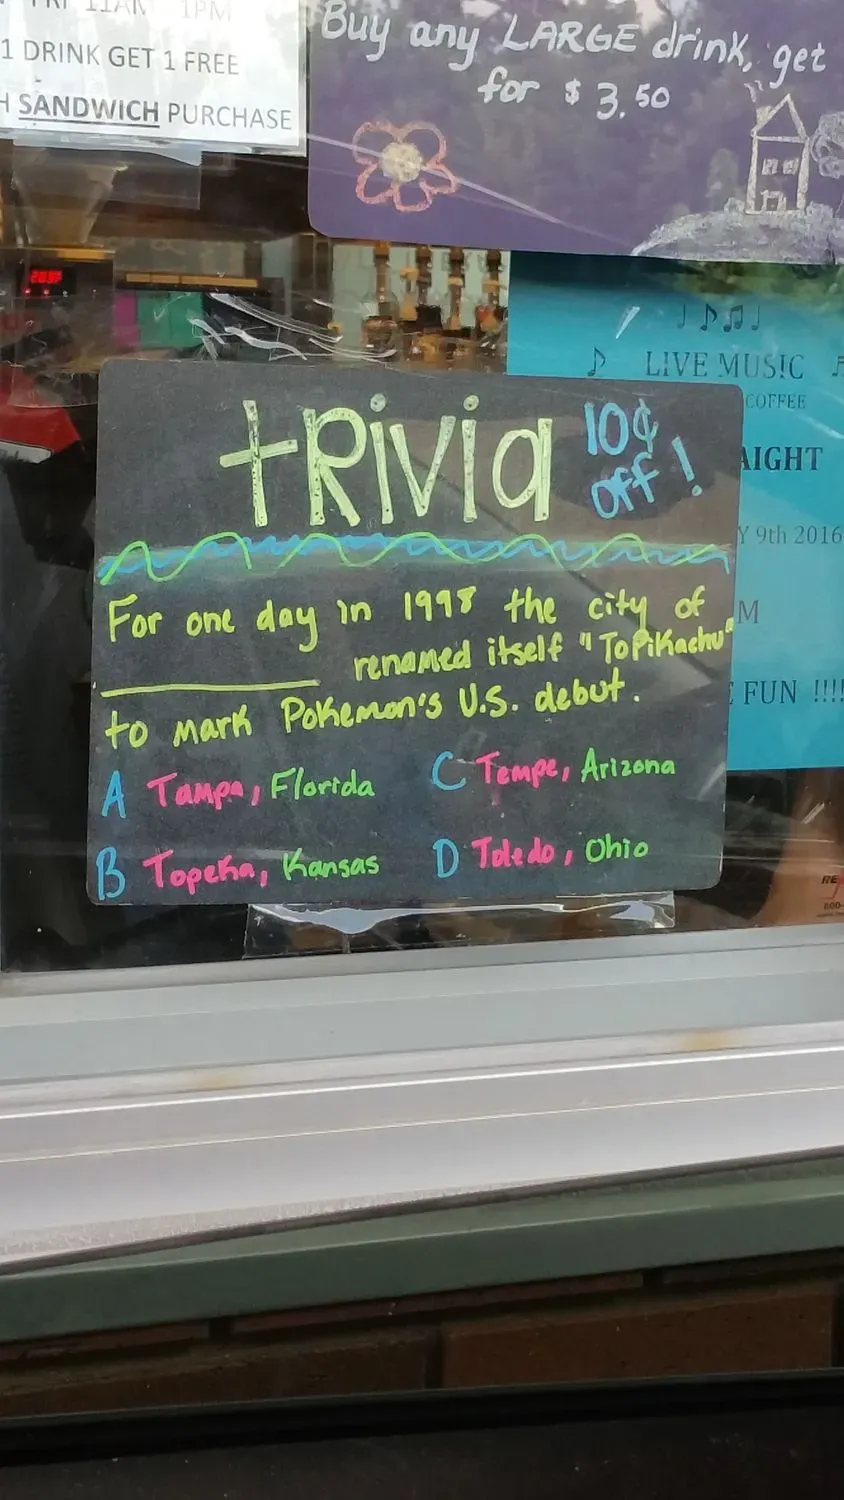 FRI 11AM 1PM
1 DRINK GET 1 FREE
H SANDWICH PURCHASE
Buy any LARGE drink, get
for $ 3.50
LIVE MUSIC
COFFEE
AIGHT
Y 9th 2016
M
E FUN !!!!
tRivia
10¢
off!
For one day in 1998 the city of
__________ renamed itself "ToPikachu"
to mark Pokemon's U.S. debut.
A Tampa, Florida
C Tempe, Arizona
B Topeka, Kansas
D Toledo, Ohio